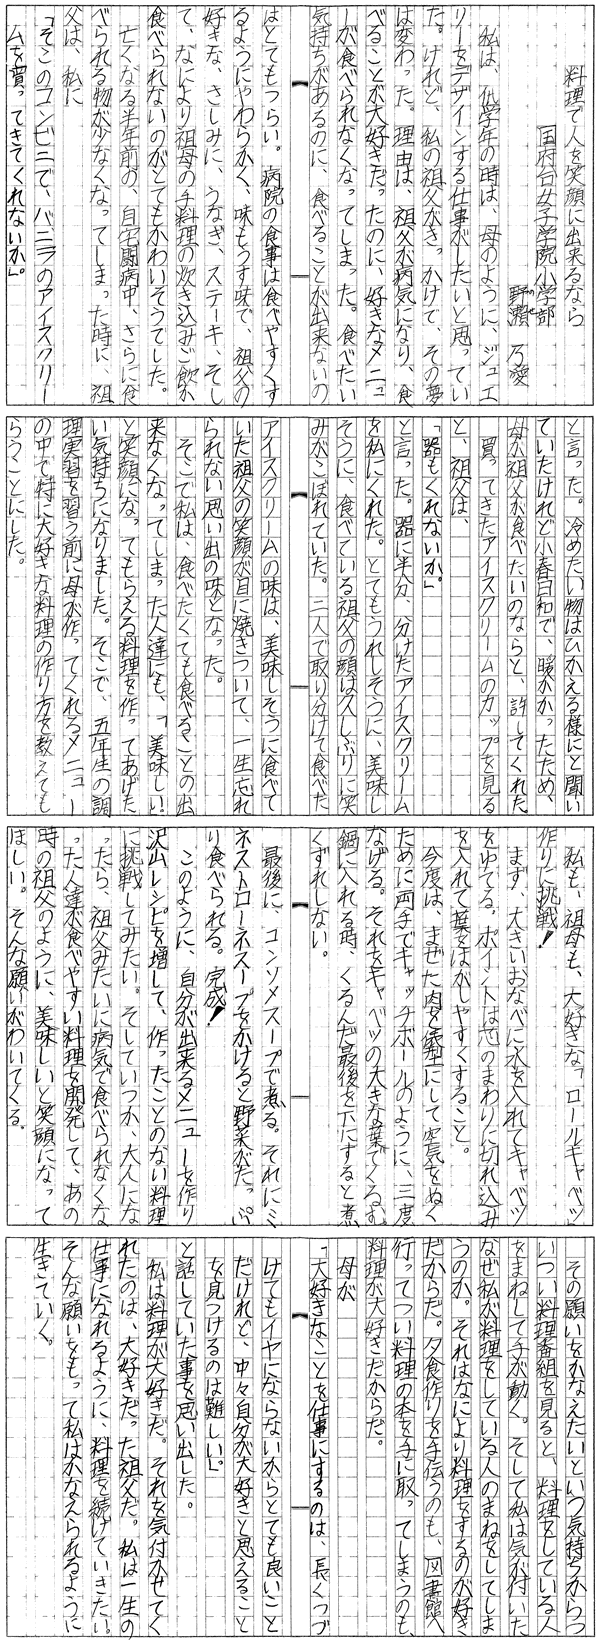 料理で人を笑顔に出来るなら
国府台女子学院小学部
野瀬 乃愛
私は、低学年の時は、母のように、ジュエ
リーをデザインする仕事がしたいと思ってい
た。けれど、私の祖父がきっかけで、その夢
は変わった。理由は、祖父が病気になり、食
べることが大好きだったのに、好きなメニュ
ーが食べられなくなってしまった。食べたい
気持ちがあるのに、食べることが出来ないの
はとてもつらい。病院の食事は食べやすくす
るようにやわらかく、味もうす味で、祖父の
好きな、さしみに、うなぎ、ステーキ、そし
て、なにより祖母の手料理の炊き込みご飯が
食べられないのがとてもかわいそうでした。
亡くなる半年前の、自宅闘病中、さらに食
べられる物が少なくなってしまった時に、祖
父は、私に
「そこのコンビニで、バニラのアイスクリー
ムを買ってきてくれないか」。
と言った。冷めたい物はひかえる様にと聞い
ていたけれど小春日和で、暖かかったため、
母が祖父が食べたいのならと、許してくれた。
買ってきたアイスクリームのカップを見る
と、祖父は、
「器もくれないか」。
と言った。器に半分、分けたアイスクリーム
を私にくれた。とてもうれしそうに、美味し
そうに、食べている祖父の顔は久しぶりに笑
みがこぼれていた。二人で取り分けて食べた
アイスクリームの味は、美味しそうに食べて
いた祖父の笑顔が目に焼きついて、一生忘れ
られない思い出の味となった。
そこで私は、食べたくても食べることの出
来なくなってしまった人達にも、「美味しい」
と笑顔になってもらえる料理を作ってあげた
い気持ちになりました。そこで、五年生の調
理実習を習う前に母が作ってくれるメニュー
の中で特に大好きな料理の作り方を教えても
らうことにした。
私も、祖母も、大好きな「ロールキャベツ」
作りに挑戦!
まず、大きいおなべに水を入れてキャベツ
をゆでる。ポイントは芯のまわりに切れ込み
を入れて葉をはがしやすくすること。
今度は、まぜた肉を俵型にして空気をぬく
ために両手でキャッチボールのように、三度
なげる。それをキャベツの大きな葉でくるむ。
鍋に入れる時、くるんだ最後を下にすると煮
くずれしない。
最後に、コンソメスープで煮る。それにミ
ネストローネスープをかけると野菜がたっぷ
り食べられる。完成!
このように、自分が出来るメニューを作り
沢山レシピを増して、作ったことのない料理
に挑戦してみたい。そしていつか、大人にな
ったら、祖父みたいに病気で食べられなくな
った人達が食べやすい料理を開発して、あの
時の祖父のように、美味しいと笑顔になって
ほしい。そんな願いがわいてくる。
その願いをかなえたいという気持ちからつ
いつい料理番組を見ると、料理をしている人
をまねして手が動く。そして私は気が付いた。
なぜ私が料理をしている人のまねをしてしま
うのか。それはなにより料理をするのが好き
だからだ。夕食作りを手伝うのも、図書館へ
行ってつい料理の本を手に取ってしまうのも、
料理が大好きだからだ。
母が
「大好きなことを仕事にするのは、長くつづ
けてもイヤにならないからとても良いこと
だけれど、中々自分が大好きと思えること
を見つけるのは難しい」
と話していた事を思い出した。
私は料理が大好きだ。それを気付かせてく
れたのは、大好きだった祖父だ。私は一生の
仕事になれるように、料理を続けていきたい。
そんな願いをもって私はかなえられるように
生きていく。